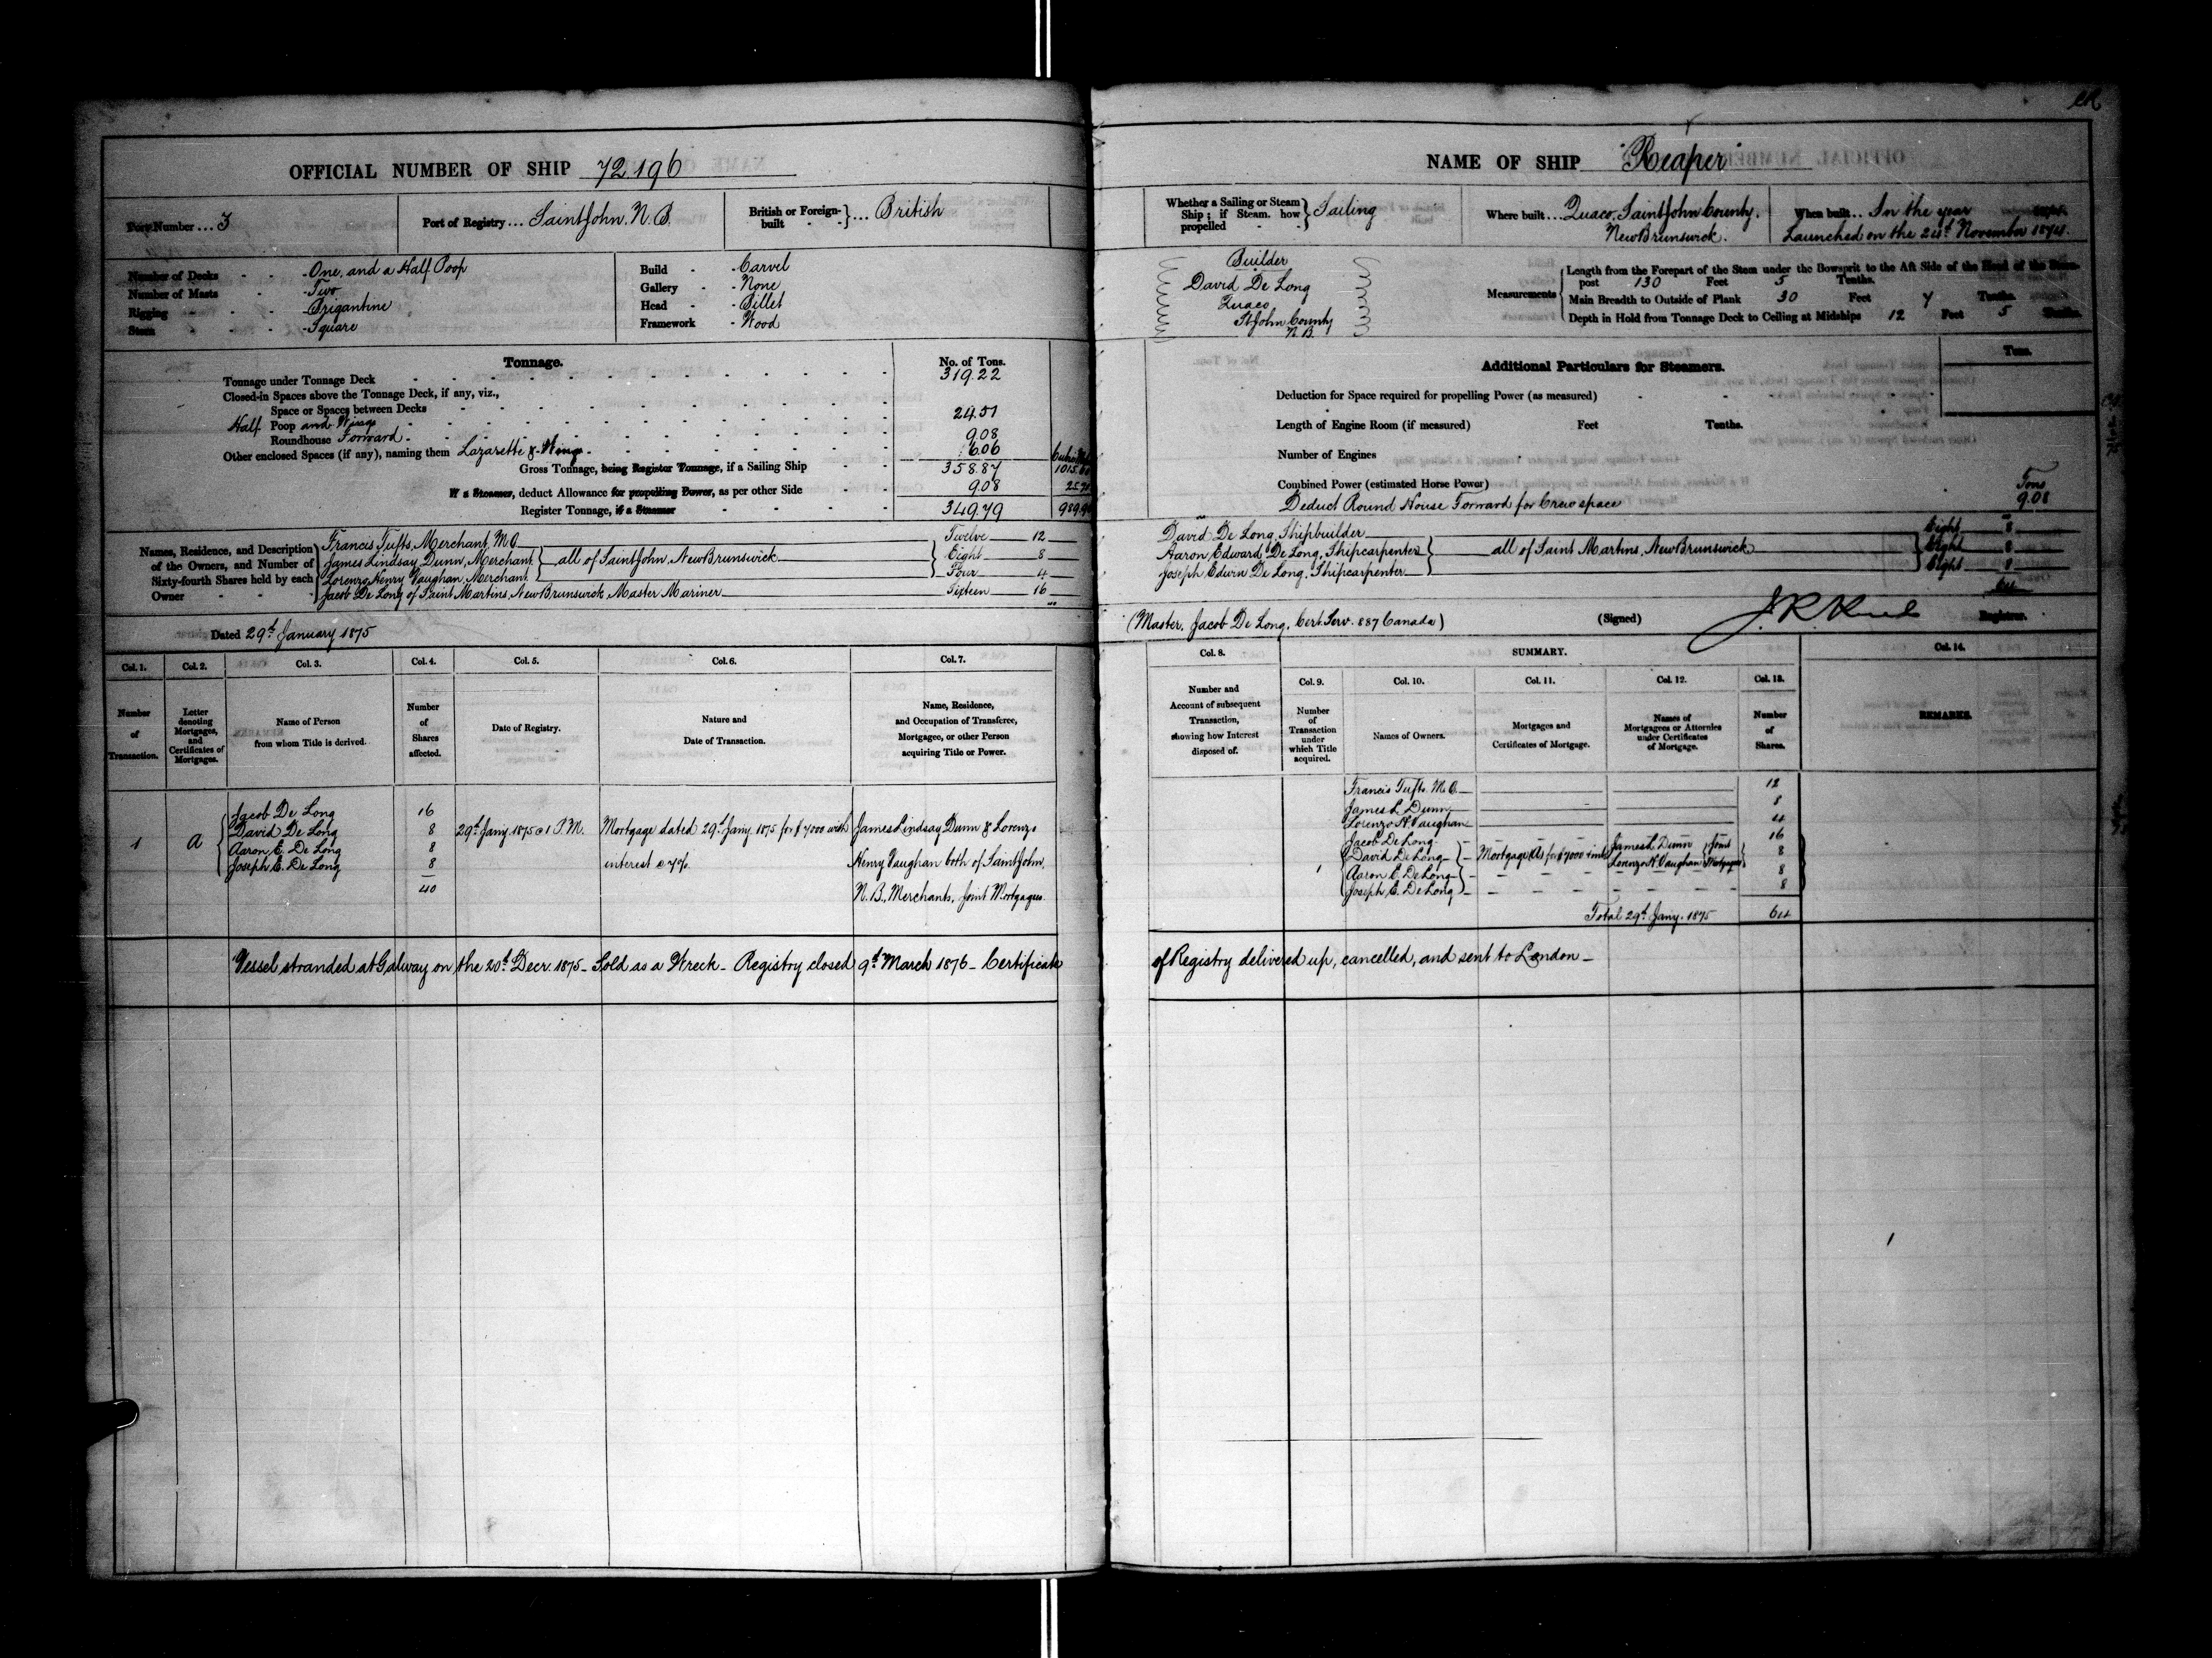 OFFICIAL NUMBER OF SHIP 72196
Port Number ... 3
Port of Registry ... Saint John. N. B.
British or Foreign-built } ... British
Number of Decks - - One, and a Half Poop
Number of Masts - - Two
Rigging - - Brigantine
Stern - - Square
Build - - Carvel
Gallery - - None
Head - - Billet
Framework - Wood
Tonnage. No. of Tons.
Tonnage under Tonnage Deck 319.22
Closed-in Spaces above the Tonnage Deck, if any, viz.,
Space or Spaces between Decks
Half Poop and Wings 24.51
Roundhouse Forward 9.08
Other enclosed Spaces (if any), naming them Lazarette & Wings 6.06
Gross Tonnage, being Register Tonnage, if a Sailing Ship 358.87
If a Steamer, deduct Allowance for propelling Power, as per other Side 9.08
Register Tonnage, if a Steamer 349.79
Names, Residence, and Description of the Owners, and Number of Sixty-fourth Shares held by each Owner
Francis Tufts, Merchant, M.O. Twelve 12
James Lindsay Dunn, Merchant } all of Saint John, New Brunswick Eight 8
Lorenzo Henry Vaughan, Merchant Four 4
Jacob De Long of Saint Martins, New Brunswick, Master Mariner Sixteen 16
Dated 29th January 1875
Col. 1. Col. 2. Col. 3. Col. 4. Col. 5. Col. 6. Col. 7.
Number of Transaction.
Letter denoting Mortgages, and Certificates of Mortgages.
Name of Person from whom Title is derived.
Number of Shares affected.
Date of Registry.
Nature and Date of Transaction.
Name, Residence, and Occupation of Transferee, Mortgagee, or other Person acquiring Title or Power.
Jacob De Long 16
1 A David De Long 8 29th Jany. 1875 @ 1 P.M. Mortgage dated 29th Jany. 1875 for $7000 with James Lindsay Dunn & Lorenzo
Aaron E. De Long 8
Joseph E. De Long 8 interest @ 7%. Henry Vaughan both of Saint John,
40 N. B., Merchants, Joint Mortgagees
Vessel stranded at Galway on the 20th Decr. 1875 - Sold as a Wreck - Registry closed 9th March 1876 - Certificate
NAME OF SHIP "Reaper"
Whether a Sailing or Steam Ship; if Steam, how propelled } Sailing
Where built ... Quaco, Saint John County, New Brunswick.
When built ... In the year
Launched on the 24th November 1874.
Builder
David De Long
Quaco
St John County
N. B.
Measurements
Length from the Forepart of the Stem under the Bowsprit to the Aft Side of the Head of the Stern-
post 130 Feet 5 Tenths.
Main Breadth to Outside of Plank 30 Feet 7 Tenths.
Depth in Hold from Tonnage Deck to Ceiling at Midships 12 Feet 5 Tenths.
Additional Particulars for Steamers. Tons.
Deduction for Space required for propelling Power (as measured)
Length of Engine Room (if measured) Feet Tenths.
Number of Engines
Combined Power (estimated Horse Power) Tons
Deduct Round House Forward for Crew space 9.08
David De Long, Shipbuilder Eight 8
Aaron Edward De Long, Shipcarpenter } all of Saint Martins, New Brunswick Eight 8
Joseph Edwin De Long, Shipcarpenter Eight 8
64
(Master, Jacob De Long, Cert. Serv. 887 Canada)
(Signed) Registrar.
Col. 8. SUMMARY. Col. 14.
Col. 9. Col. 10. Col. 11. Col. 12. Col. 13.
Number and Account of subsequent Transaction, showing how Interest disposed of.
Number of Transaction under which Title acquired.
Names of Owners.
Mortgages and Certificates of Mortgage.
Names of Mortgagees or Attornies under Certificates of Mortgage.
Number of Shares.
REMARKS.
Francis Tufts. M.O. 12
James L. Dunn 8
Lorenzo H. Vaughan 4
Jacob De Long 16
1 David De Long Mortgage (A) for $7000 James L. Dunn Lorenzo H. Vaughan } Joint Mortgagees 8
Aaron E. De Long 8
Joseph E. De Long 8
Total 29th Jany. 1875 64
of Registry delivered up, cancelled, and sent to London -